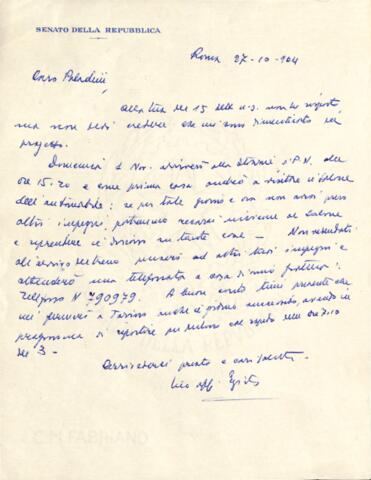 SENATO DELLA REPUBBLICA
Roma 27-10-964
Caro Paladini,
alla tua del 15 delle u.s. non ho risposto
ma non devi credere che mi sono dimenticato del
progetto.
Domenica 1 Nov. arriverò alla stazione di P.N. alle
ore 15.20 e come prima cosa andrò a visitare il Salone
dell'automobile: se per tale giorno e ora non avrai presi
altri impegni, potremmo recarci insieme al Salone
e riprendere il discorso su tante cose - Non vedendoti
all'arrivo del treno penserò ad altri tuoi impegni e
attenderò una telefonata a casa di mio fratello:
Telefono N 790979. A buon conto tieni presente che
mi fermerò a Torino anche il giorno successivo, avendo in
programma di ripartire per col rapido delle ore 7.10
del 3-
Arrivederci presto e cari saluti
tuo aff.
C.M. FABRIANO